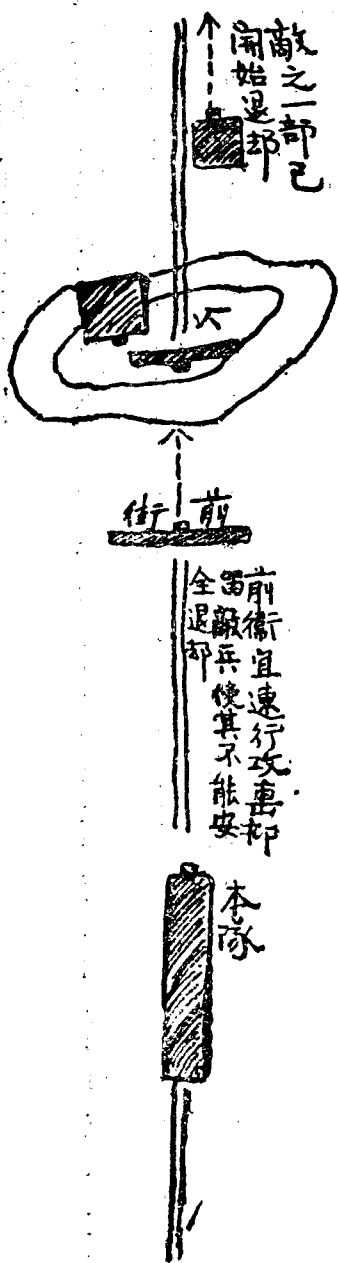 敵之一部已
開始退却
前衛
前衛宜速行攻擊抑
留敵兵使其不能安
全退却
本隊